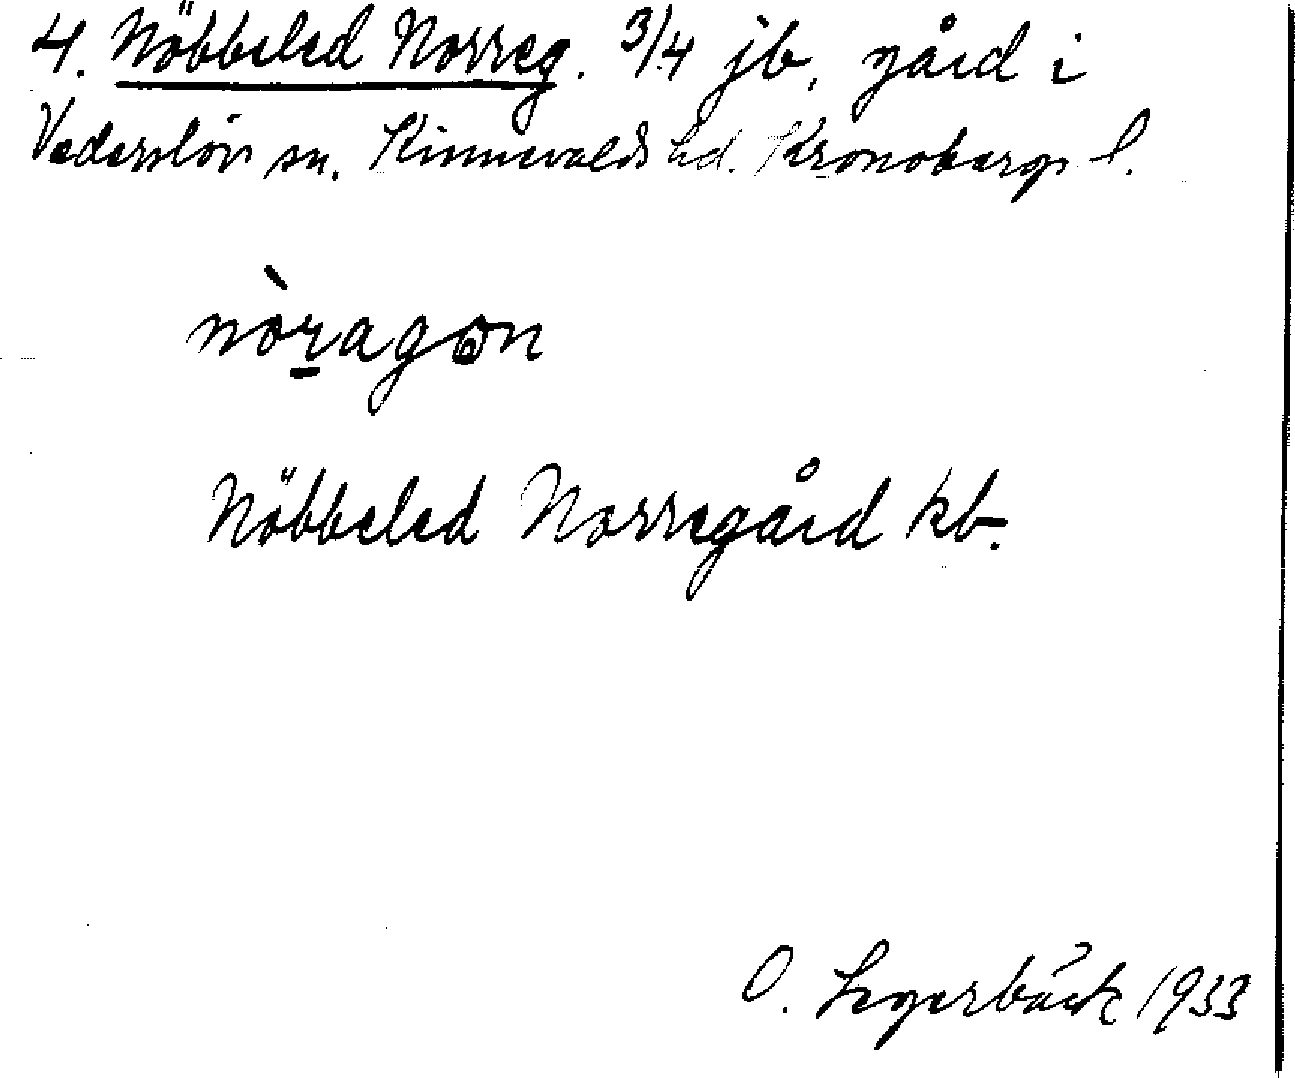 4. Nöbbeled Norreg. 3/4 jb, gård i
Vederslöv sn. Kinnevalds hd. Kronobergs l.
nòragon
Nöbbeled Norregård kb.
O. Legerbäck 1933